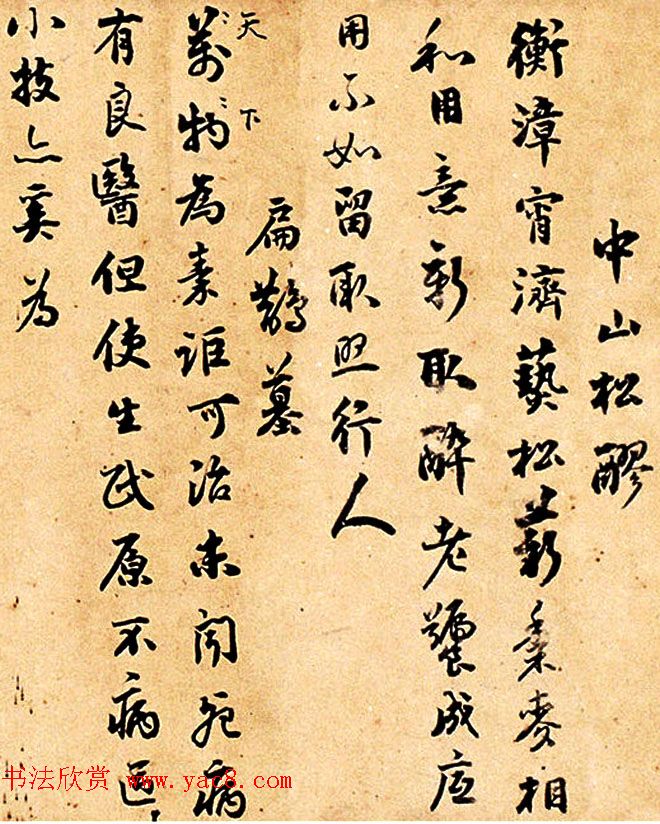 中山松醪
衡漳宵濟爇松薪黍麥相
和用意新取醉老饕成底
用不如留取照行人
扁鵲墓
天下
萬物為秦詎可治未聞死病
有良醫但使生民原不病區〻
小技亦奚為
书法欣赏 www.yac8.com